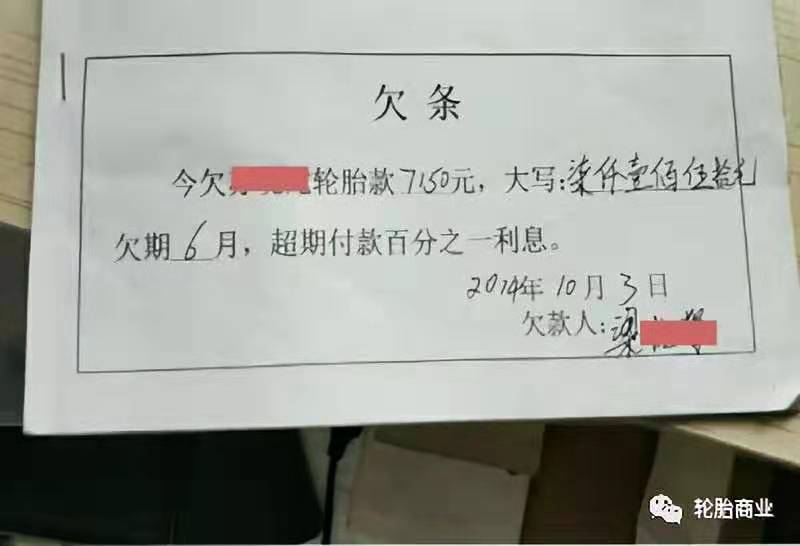 欠条
今欠轮胎款7150元，大写：柒仟壹佰伍拾元
欠期6月，超期付款百分之一利息。
2014年10月3日
欠款人：梁
轮胎商业